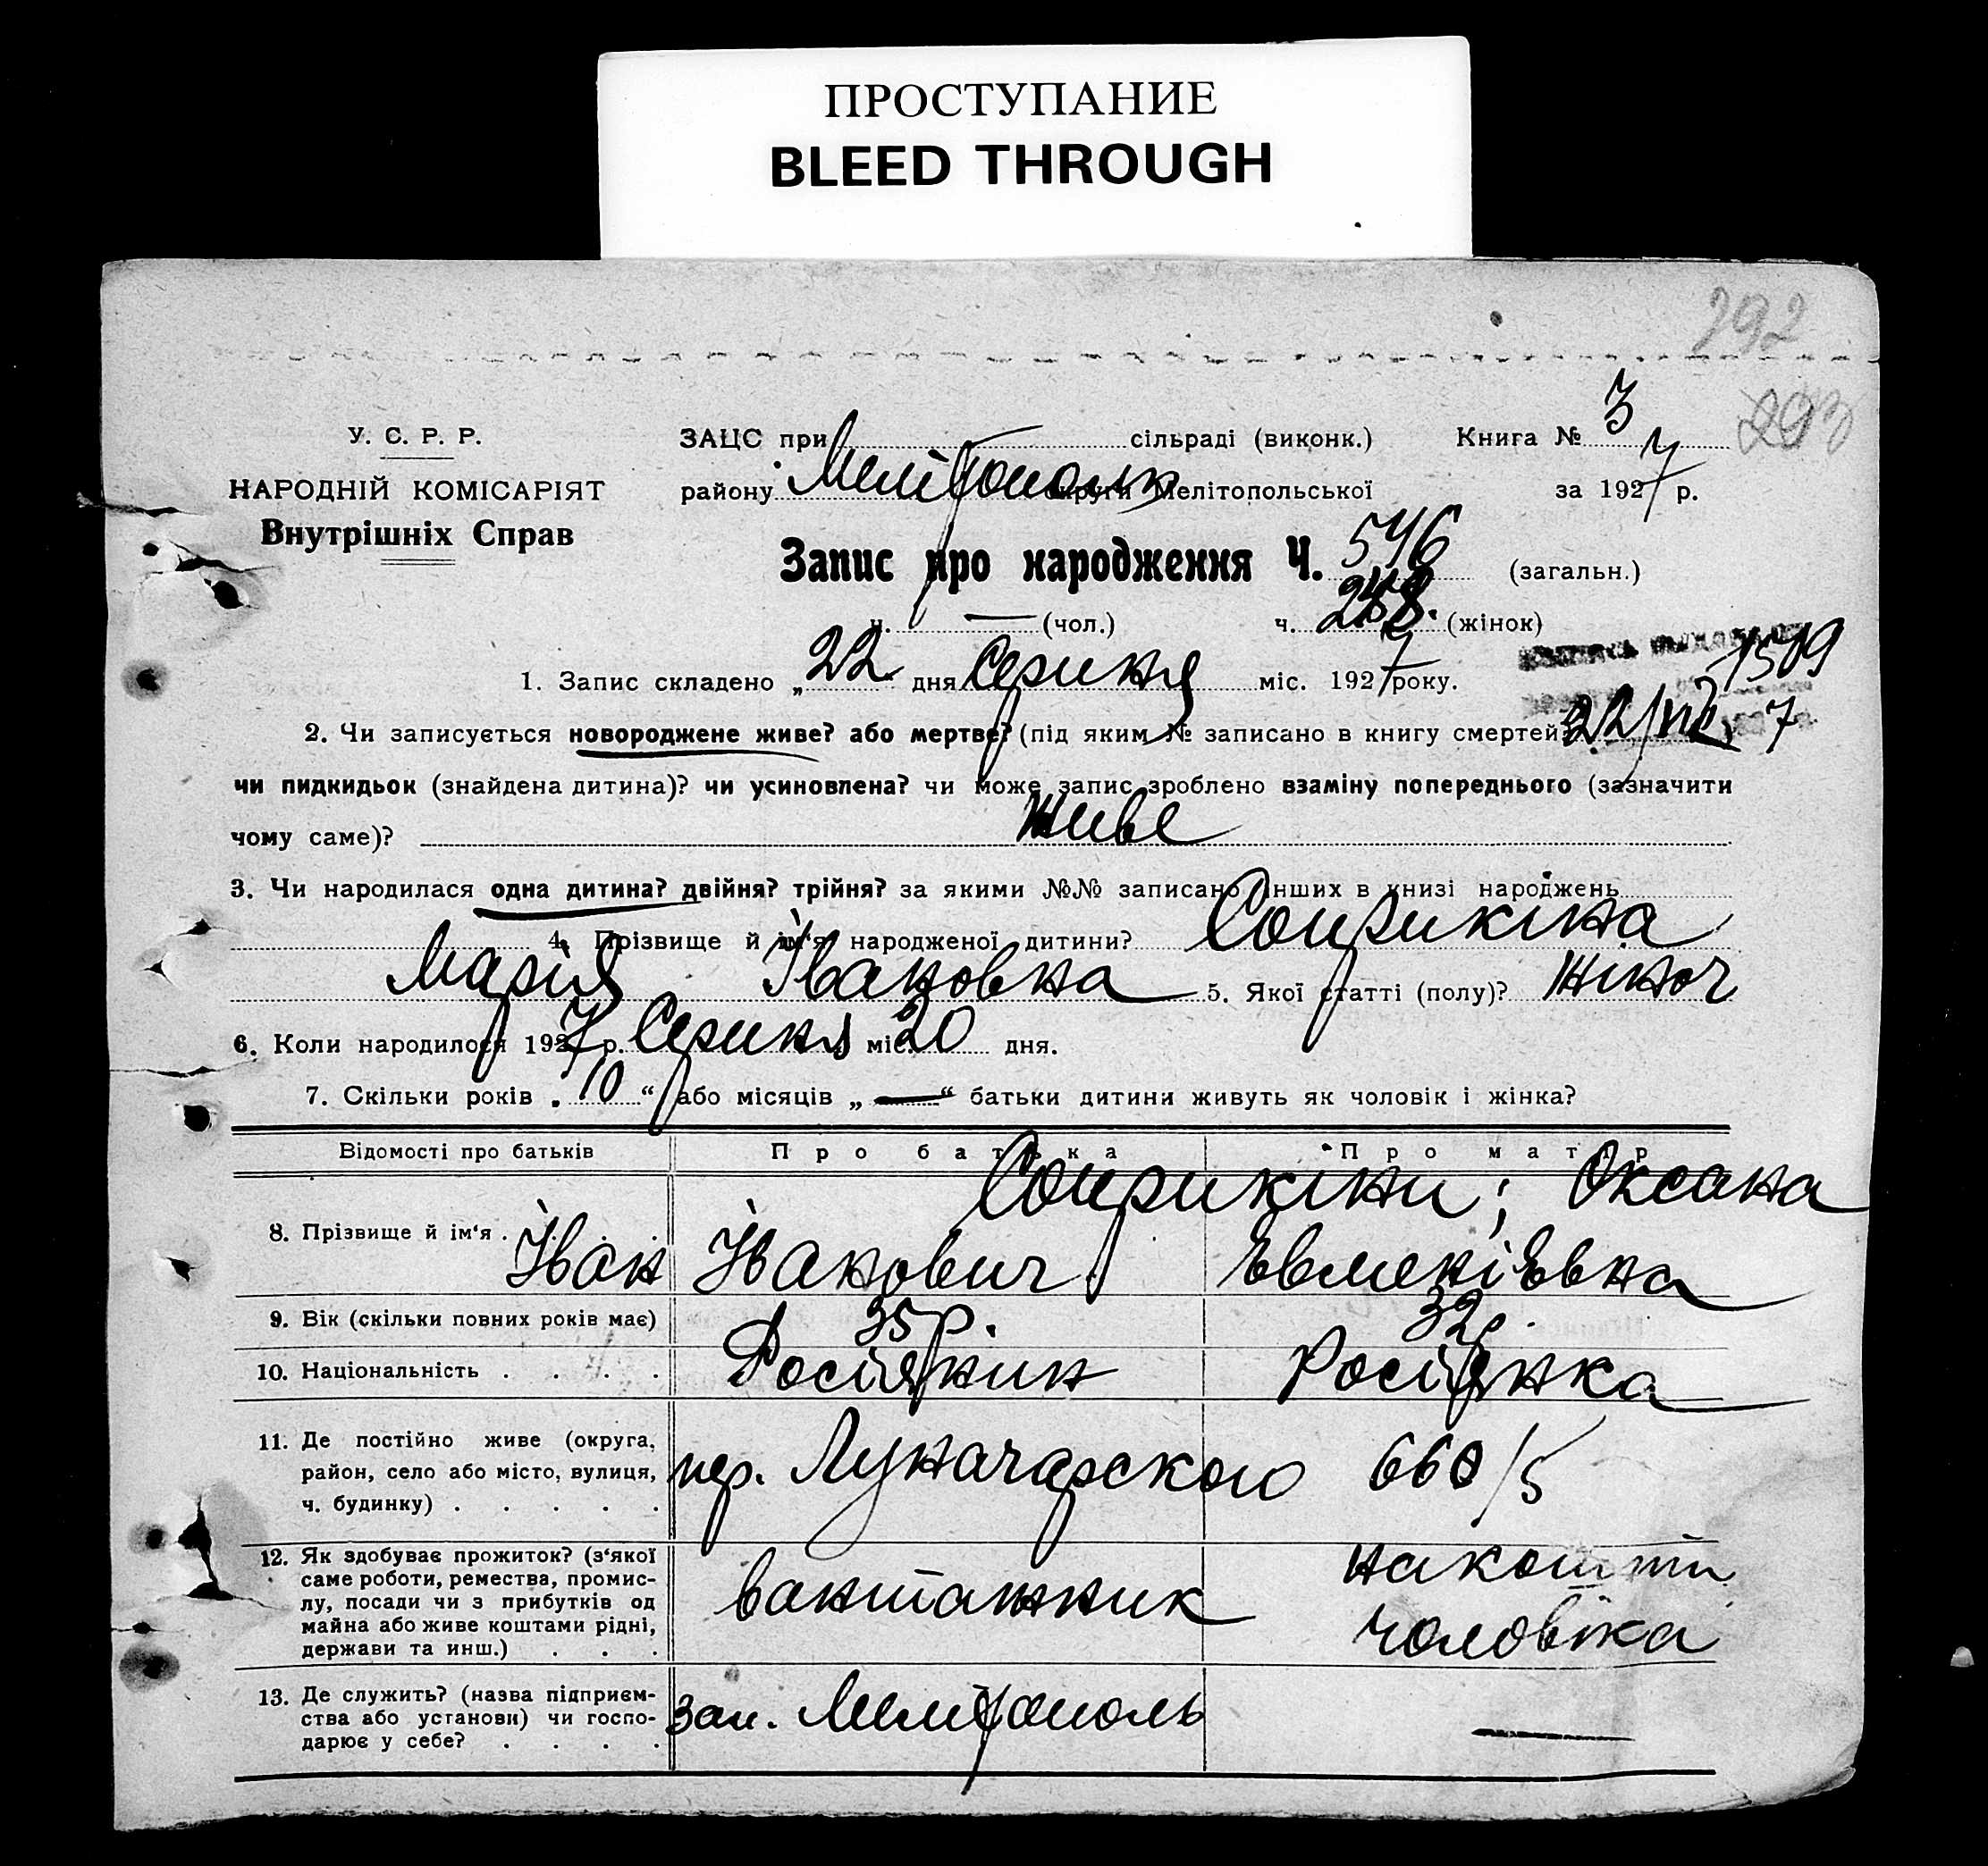 ПРОСТУПАНИЕ
BLEED THROUGH
292
293
У. С. Р. Р.
НАРОДНІЙ КОМІСАРІЯТ
Внутрішніх Справ
ЗАЦС при сільраді (виконк.) Книга № 3
району Мелітополь округи Мелітопольської за 1927 р.
Запис про народження Ч. 546 (загальн.)
ч. — (чол.) ч. 248. (жінок)
1509
1. Запис складено „ 22 дня Серпня міс. 1927 року.
2. Чи записується новороджене живе? або мертве? (під яким № записано в книгу смертей)
22/VIII 7
чи пидкидьок (знайдена дитина)? чи усиновлена? чи може запис зроблено взаміну попереднього (зазначити
чому саме)? Живе
3. Чи народилася одна дитина? двійня? трійня? за якими №№ записано інших в книзі народжень
4. Прізвище й ім'я народженої дитини? Соприкіна
Марія Івановна 5. Якої статті (полу)? Жіноч
6. Коли народилося 1927 р. Серпня міс. 20 дня.
7. Скільки років „ 10 “ або місяців „ — “ батьки дитини живуть як чоловік і жінка?
Відомості про батьків Про батька Про матір
Соприкіни; Оксана
8. Прізвище й ім'я . Іван Іванович Евменіевна
9. Вік (скільки повних років має) 35 р. 32 р.
10. Національність . . . . Росіянин Росіянка
11. Де постійно живе (округа,
район, село або місто, вулиця,
ч. будинку) . . . . . пер. Луначарского 660/5
12. Як здобуває прожиток? (з'якої
саме роботи, ремества, промис-
лу, посади чи з прибутків од
майна або живе коштами рідні,
держави та инш.) . . . вантажник на кошти
чоловіка
13. Де служить? (назва підприєм-
ства або установи) чи госпо-
дарює у себе? . . . . зал. Мелітополь —